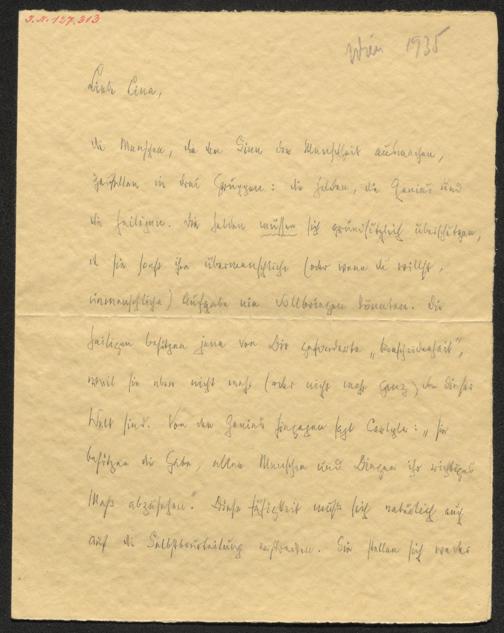 J.N. 127.313
Wien 1935
Liebe Lina,
die Menschen, die den Sinn der Menschheit ausmachen,
zerfallen in drei Gruppen: die Helden, die Genies und
die Heiligen. Die Helden müssen sich grundsätzlich überschätzen,
da sie sonst ihre übermenschliche (oder wenn du willst,
unmenschliche) Aufgabe nie vollbringen könnten. Die
Heiligen besitzen jene von Dir geforderte „Bescheidenheit",
weil sie eben nicht mehr (oder nicht mehr ganz) von dieser
Welt sind. Von den Genies hingegen sagt Carlyle: „sie
besitzen die Gabe, allen Menschen und Dingen ihr richtiges
Maß abzusehen." Diese Fähigkeit muß sich natürlich auch
auf die Selbstbeurteilung erstrecken. Sie stellen sich weder